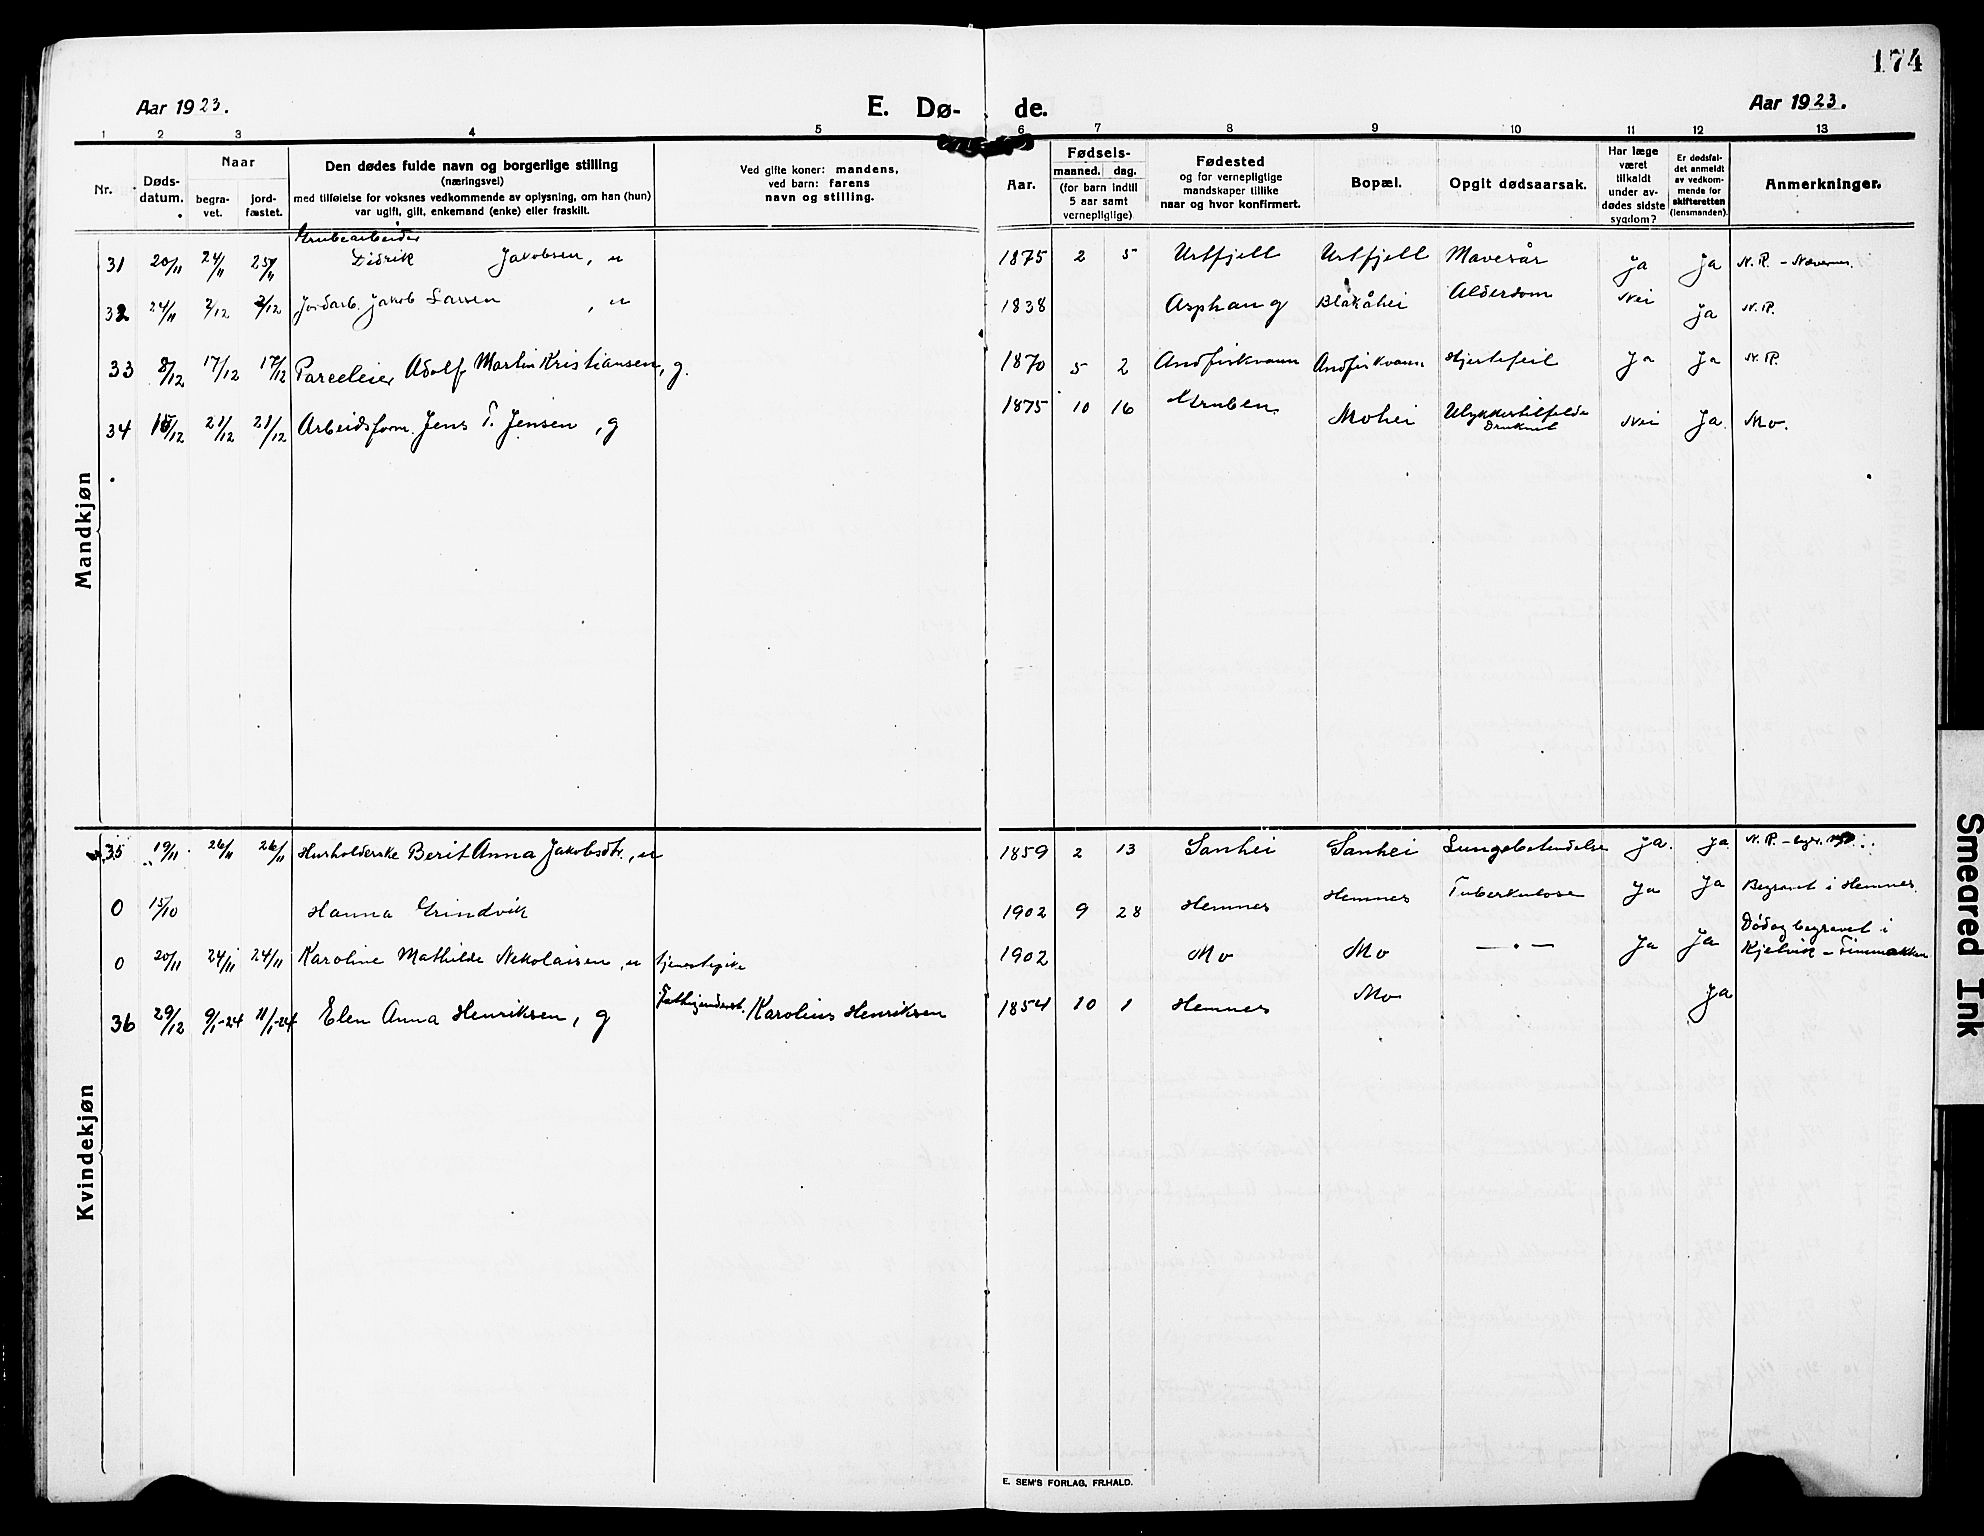 174
Aar 1923.
E. Dø- de.
Aar 1923.
1 2 3 4 5 6 7 8 9 10 11 12 13
Nr.
Døds-
datum.
Naar
begra-
vet.
jord-
fæstet.
Den dødes fulde navn og borgerlige stilling
(næringsvei)
med tilføielse for voksnes vedkommende av oplysning, om han (hun)
var ugift, gift, enkemand (enke) eller fraskilt.
Ved gifte koner: mandens,
ved barn: farens
navn og stilling.
Aar.
Fødsels-
maaned. dag.
(for barn indtil
5 aar samt
vernepligtige)
Fødested
og for vernepligtige
mandskaper tillike
naar og hvor konfirmert.
Bopæl.
Opgit dødsaarsak.
Har læge
været
tilkaldt
under av-
dødes sidste
sygdom?
Er dødsfal-
det anmeldt
av vedkom-
mende for
skifteretten
(lensmanden).
Anmerkninger.
Mandkjøn
Grubearbeider
31 20/11 24/11 25/11 Didrik Jakobsen, u 1875 2 5 Urtfjell Urtfjell Mavesår Ja Ja N.R. - Nævernes.
32 24/11 2/12 2/12 Jordarb. Jakob Larsen, u 1838 Asphaug Blakåhei Alderdom Nei Ja N.R.
33 8/12 17/12 17/12 Parceleier Adolf Martin Kristiansen, g. 1870 5 2 Andfiskvann Andfiskvann Hjertefeil Ja Ja N.R.
34 15/12 21/12 21/12 Arbeidsform. Jens T. Jensen, g 1875 10 16 Gruben Mohei Ulykkestilfelde Nei Ja. Mo.
Druknet
Kvindekjøn
35 19/11 26/11 26/11 Husholderske Berit Anna Jakobsdtr., u 1859 2 13 Sanhei Sanhei Lungebetendelse Ja. Ja N.R. - begr.
0 15/10 Hanna Grindvik 1902 9 28 Hemnes Hemnes Tuberkulose Ja Ja Begravet i Hemnes.
0 20/11 24/11 24/11 Karoline Mathilde Nekolaisen, u tjenestepike 1902 Mo Mo — " — Ja Ja Død og begravet i
Kjelvik - Finmarken
36 29/12 9/1-24 11/1-24 Elen Anna Henriksen, g Karolius Henriksen 1854 10 1 Hemnes Mo Ja
E. SEM'S FORLAG, FR.HALD.
Smeared Ink